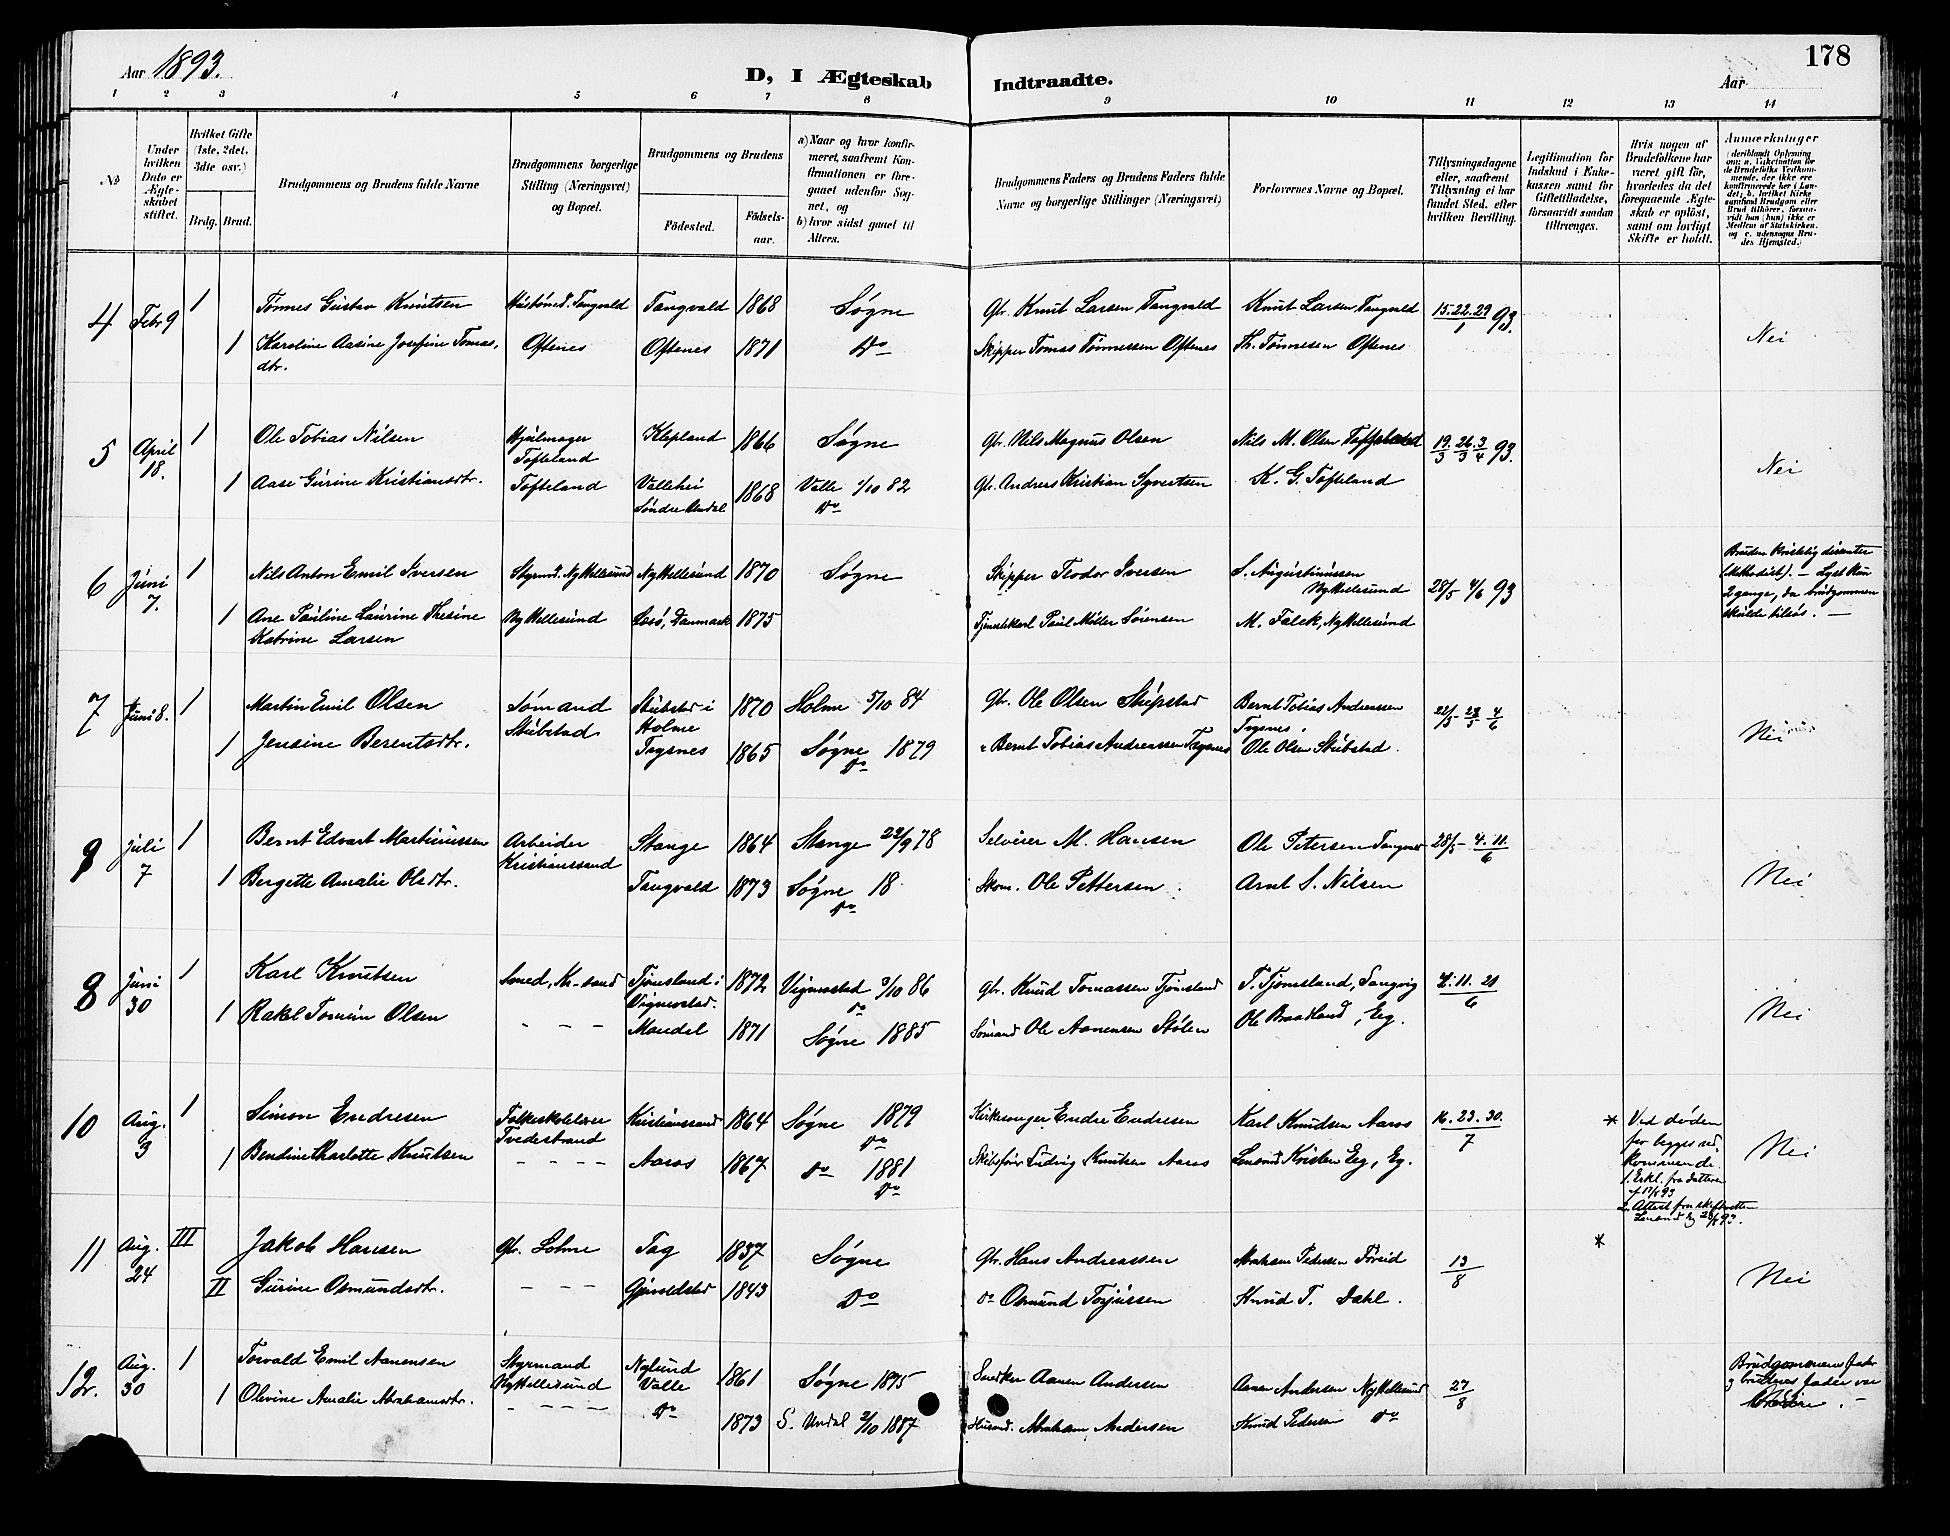 178
Aar 1893.
D, I Ægteskab Indtraadte.
Aar
1 2 3 4 5 6 7 8 9 10 11 12 13 14
No
Under hvilken Dato er Ægteskabet stiftet.
Hvilket Gifte (1ste, 2det, 3die osv.)
Brdg. Brud.
Brudgommens og Brudens fulde Navne
Brudgommens borgerlige Stilling (Næringsvei) og Bopæl.
Brudgommens og Brudens
Födested.
Födselsaar.
a) Naar og hvor konfirmeret, saafremt Konfirmationen er foregaaet udenfor Sognet, og
b) hvor sidst gaaet til Alters.
Brudgommens Faders og Brudens Faders fulde Navne og borgerlige Stillinger (Næringsvei)
Forlovernes Navne og Bopæl.
Tillysningsdagene eller, saafremt Tillysning ei har fundet Sted, efter hvilken Bevilling.
Legitimation for Indskud i Enkekassen samt for Giftetilladelse, forsaavidt saadan tiltrænges.
Hvis nogen af Brudefolkene har været gift før, hvorledes da det foregaaende Ægteskab er oplöst, samt om lovligt Skifte er holdt.
Anmærkninger
(deriblandt Oplysning om: a. Vaksination for de Brudefolks Vedkommende, der ikke ere konfirmerede her i Landet; b. hvilket Kirkesamfund Brudgom eller Brud tilhörer, forsaavidt han (hun) ikke er Medlem af Statskirken, og c. udensogns Brudes Hjemsted.)
4 Febr 9 1 Tønnes Gustav Knutsen Tangvald Tangvald 1868 Søgne Gbr. Knut Larsen Tangvald Knut Larsen Tangvald 15.22.29/1 93.
1 Karoline Aasine Josefine Tomasdtr. Oftenes Oftenes 1871 Do Skipper Tomas Tønnessen Oftenes Th. Tønnesen Oftenes Nei
5 April 18. 1 Ole Tobias Nilsen Hjulmager Tofteland Klepland 1866 Søgne Gbr. Nils Magnus Olsen Nils M. Olsen 19/3 26/3 3/4 93.
1 Aase Gurine Kristiansdtr. Tofteland Vallehei Søndre Undal 1868 Valle 1/10 82 Do Gbr. Andreas Kristian Syvertsen K. G. Tofteland Nei
6 Juni 7. 1 Nils Anton Emil Iversen Styrmd. Ny Hellesund Ny Hellesund 1870 Søgne Skipper Teodor Iversen S. Augustinussen Ny Hellesund 28/5 4/6 93
Bruden kristelig dissenter (Methodist). — Lyst kun 2 gange, da brudgommen skulde tilsøs. —
1 Ane Pauline Laurine Thesine Katrine Larsen Ny Hellesund Læsø, Danmark 1875 Paul Møller Sørensen M. Falck, Ny Hellesund
7 Juni 8. 1 Martin Emil Olsen Sømand Stubstad Stubstad i Holme 1870 Holme 5/10 84 Gbr. Ole Olsen Bernt Tobias Andreassen Tagsnes. 22/5 28/5 4/6
1 Jensine Berentsdtr. Tagsnes 1865 Søgne 1879 Do " Bernt Tobias Andreassen Tagsnes Ole Olsen Stubstad. Nei
9 Juli 7 1 Bernt Edvart Martinussen Arbeider Kristianssand Stange 1864 Stange 22/9 78 Selveier M. Hansen Ole Petersen 28/5 - 4. 11./6
1 Bergette Amalie Olsdtr. Tangvald 1873 Søgne 18 Do Skom. Ole Pettersen Arnt S. Nilsen Nei
8 Juni 30 1 Karl Knutsen Smed, Kr-sand Tjomsland i Vigmostad. 1872 Vigmostad 3/10 86 Do Gbr. Knud Tomassen Tjomsland T. Tjomsland, Langvig 4. 11. 21/6
1 Rakel Olsen - - - Mandal 1871 Søgne 1885 Sømand Ole Aanensen Stølen Ole Braadland, Eeg. Nei
10 Aug. 3 1 Simon Endresen Folkeskolelærer Tvedestrand Kristianssand 1864 Søgne 1879 Do Kirkesanger Endre Endresen Karl Knudsen Aaros 16. 23. 30./7
1 Bendine Charlotte Knutsen - - - - Aaros 1867 Do 1881 Do Skibsfører Ludvig Knutsen Aaros Lensmd. Kristen Eeg, Eg. Nei
* Ved døden for begges vedkommende. 1. Erkl. fra datteren 2. Attest fra skifteretten
11 Aug. 24 III Jakob Hansen Gbr. Lohne Tag 1837 Søgne Gbr. Hans Andreassen Abraham Pedersen 13/8 *
II Gurine Osmundsdtr. - - - 1843 Do Do Osmund Torjussen Knud T. Dahl. Nei
12. Aug. 30 1 Torvald Emil Aanensen Styrmand Ny Hellesund Nylund Valle 1861 Søgne 1875 Snedker Aanen Andersen Aanen Andersen Ny Hellesund 27/8
1 Olevine Amalie Abrahamsdtr. - - - - Do 1873 S. Undal 2/10 1887 Husmd. Abraham Andersen Knud Pedersen Do
Brudgommens fader og brudens fader var Brødre. —